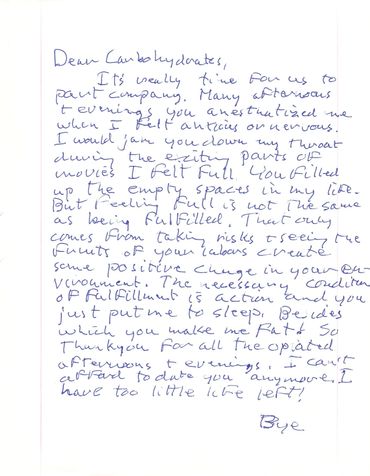 Dear Carbohydrates,
It's really time for us to
part company. Many afternoons
+ evenings you anesthatized me
when I felt anxious or nervous.
I would jam you down my throat
during the exciting parts of
movies I felt full you filled
up the empty spaces in my life.
But Feeling Full is not the same
as being fulfilled. That only
comes from taking risks + seeing the
fruits of your labors create
some positive change in your en-
vironment. The necessary condition
of fulfillment is action and you
just put me to sleep. Besides
which you make me Fat & So
Thankyou for all the opiated
afternoons + evenings. I can't
afford to date you anymore. I
have too little life left!
Bye